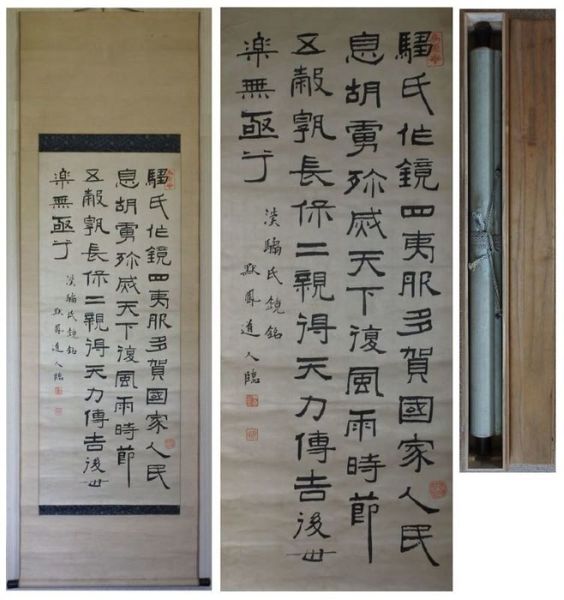 騶氏作鏡四夷服多賀國家人民
息胡虜殄滅天下復風雨時節
五穀孰長保二親得天力傳告後世
楽無亟兮
漢騶氏鏡銘
默鳳道人臨
騶氏作鏡四夷服多賀國家人民
息胡虜殄滅天下復風雨時節
五穀孰長保二親得天力傳告後世
楽無亟兮
漢騶氏鏡銘
默鳳道人臨